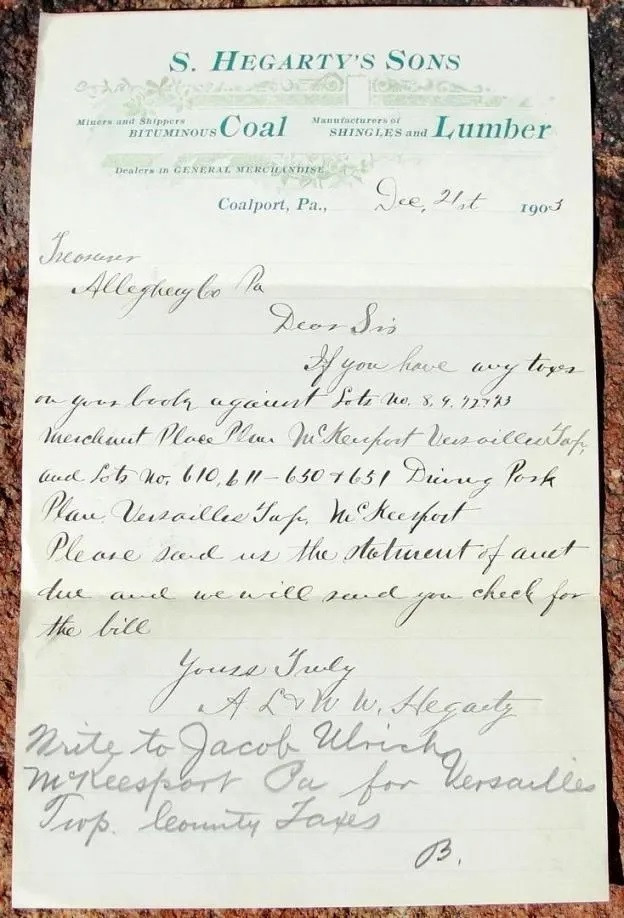 S. HEGARTY'S SONS
Miners and Shippers
BITUMINOUS Coal
Manufacturers of
SHINGLES and Lumber
Dealers in GENERAL MERCHANDISE
Coalport, Pa., Dec, 21st 1903
Treasurer
Allegheny Co Pa
Dear Sir
If you have any taxes
on your books against Lots No. 8, 9,
Merchant Place Plan McKeesport Versailles Twp,
and Lots No, 610, 611 - 650 & 651 Driving Park
Plan, Versailles Twp, McKeesport
Please send us the statment of amt
due and we will send you check for
the bill
Yours Truly
A L & W W. Hegarty
Write to Jacob Ulrich,
McKeesport Pa for Versailles
Twp. County Taxes
B.